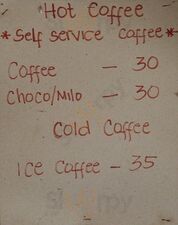 Hot Coffee
*Self service coffee*
Coffee – 30
Choco/Milo – 30
Cold Coffee
Ice Coffee – 35